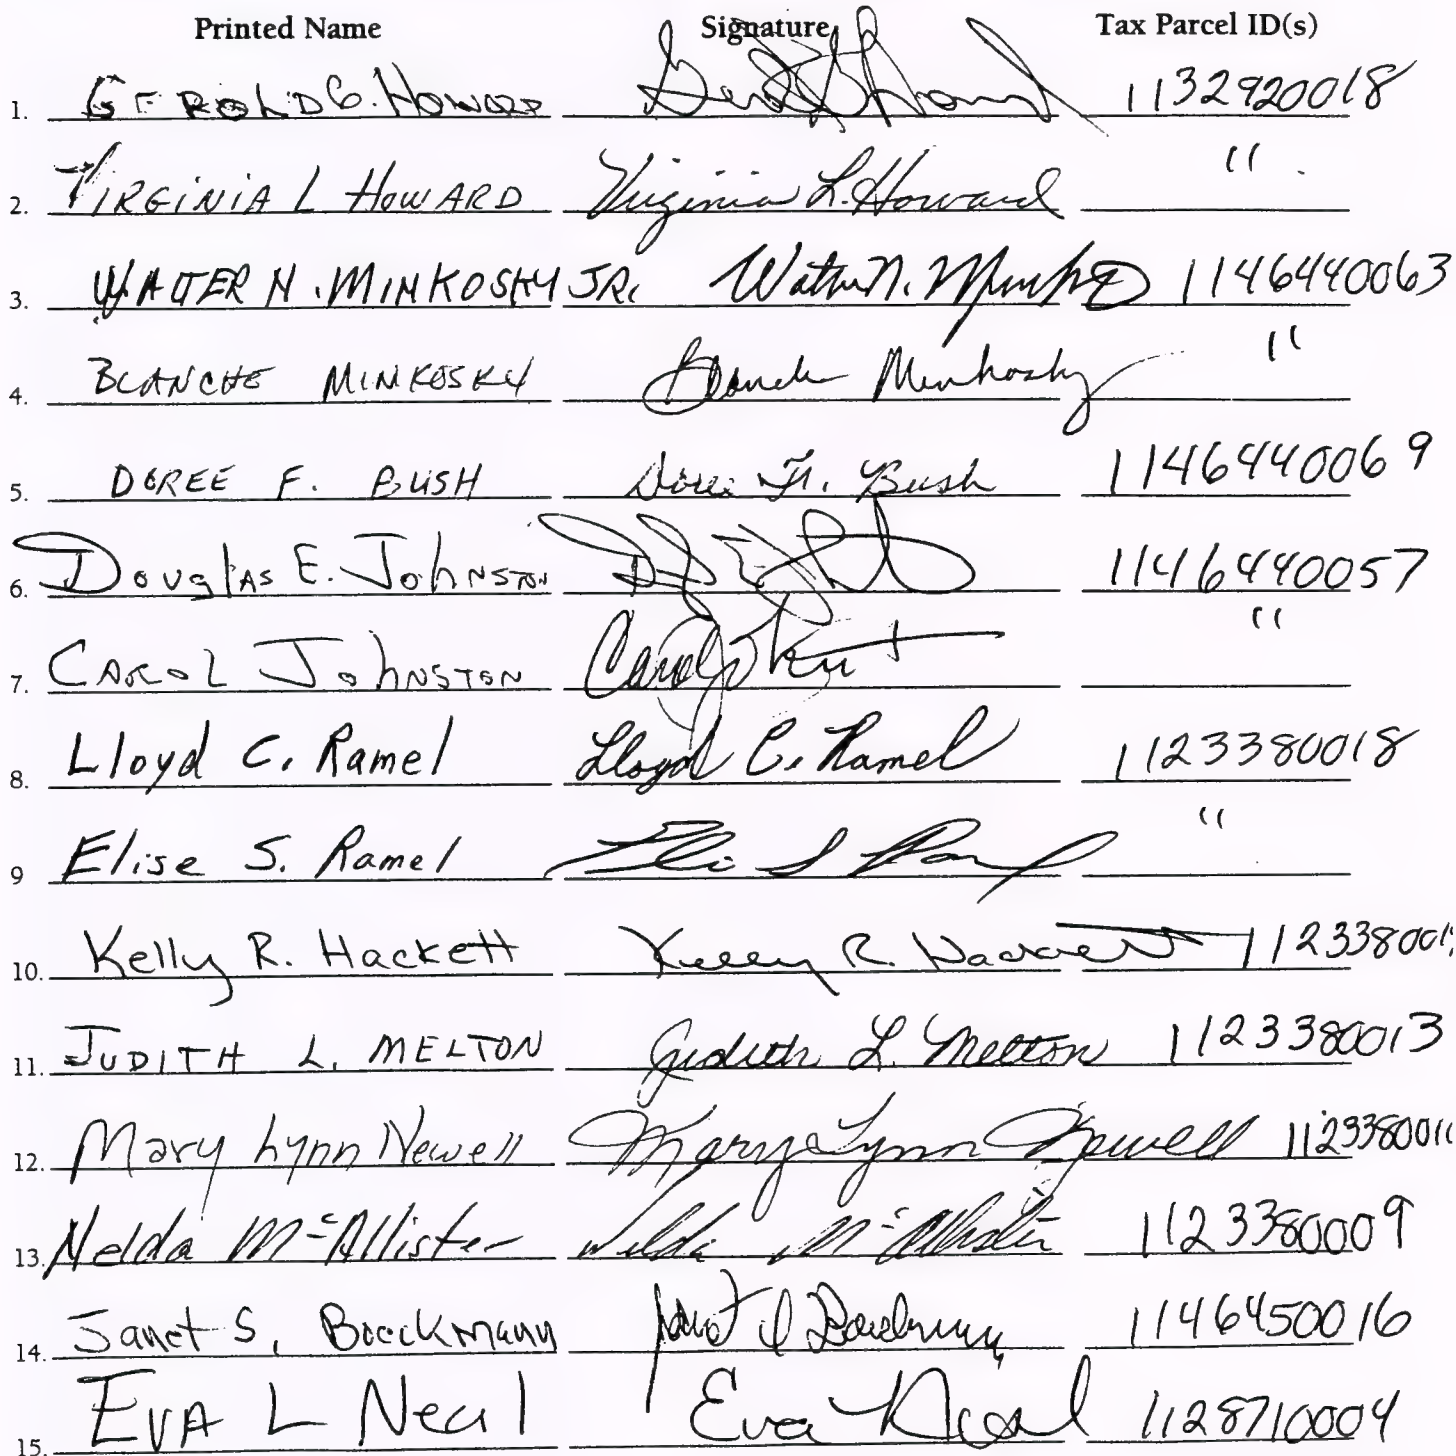 Printed Name Signature Tax Parcel ID(s)
1. GEROLD G. HOWARD 1132920018
2. VIRGINIA L HOWARD Virginia L. Howard "
3. WALTER N. MINKOSKY JR. Walter N. 1146440063
4. BLANCHE MINKOSKY Blanche Minkosky "
5. DOREE F. BUSH Doree F. Bush 1146440069
6. Douglas E. Johnston 1146440057
7. CAROL JOHNSTON Carol "
8. Lloyd C. Ramel Lloyd C. Ramel 1123380018
9 Elise S. Ramel "
10. Kelly R. Hackett Kelly R. Hackett
11. JUDITH L. MELTON Judith L. Melton 1123380013
12. Mary Lynn Newell Mary Lynn Newell
13. Nelda McAllister Nelda McAllister 1123380009
14. Janet S. Boeckmann Janet S Boeckmann 1146450016
15. EVA L Neal Eva Neal 1128710004